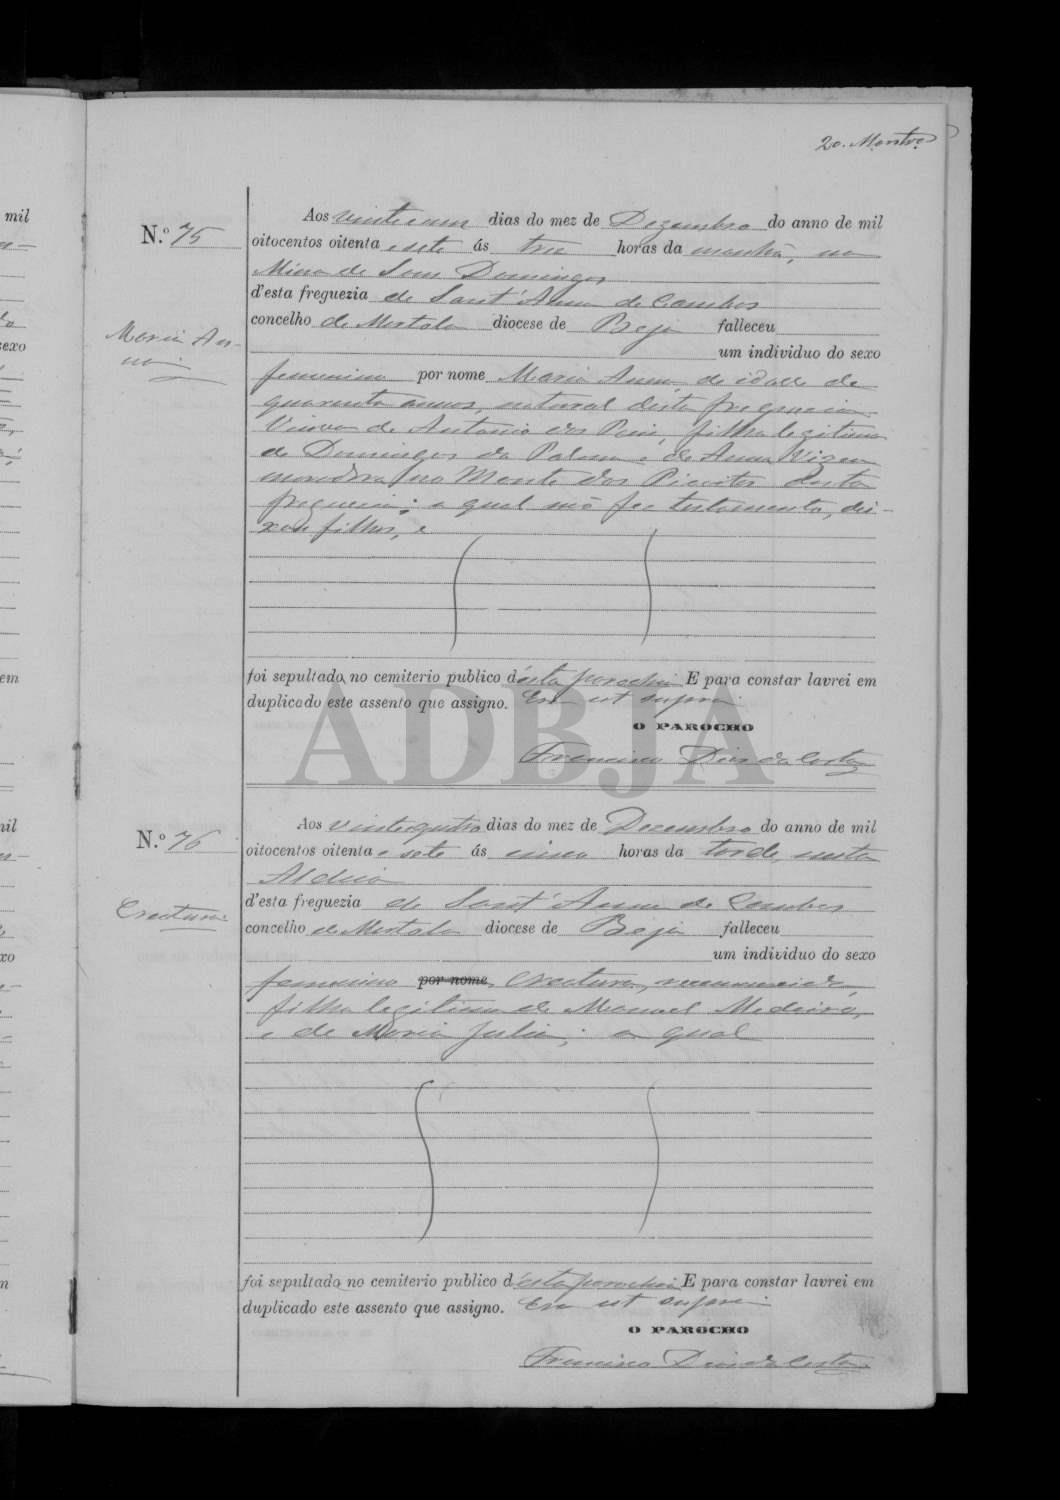 20. Monteiro
N.º 75
Maria An-
na
Aos vinte e um dias do mez de Dezembro do anno de mil
oitocentos oitenta e sete ás tres horas da manhã, na
Mina de Sam Domingos
d'esta freguezia de Sant'Anna de Cambas
concelho de Mertola diocese de Beja falleceu
um individuo do sexo
femenino por nome Maria Anna, de idade de
quarenta annos, natural desta freguezia
Viuva de Antonio dos Reis, filha legitima
de Domingos da Palma e de Anna
moradora no Monte dos Picoitos desta
freguezia; a qual não fez testamento, dei-
xou filhos, e
foi sepultada no cemiterio publico d'esta parochia E para constar lavrei em
duplicado este assento que assigno. Era ut supra
O PAROCHO
Francisco Dias da Costa
N.º 76
Creatura
Aos vinte quatro dias do mez de Dezembro do anno de mil
oitocentos oitenta e sete ás cinco horas da tarde, nesta
Aldeia
d'esta freguezia de Sant'Anna de Cambas
concelho de Mertola diocese de Beja falleceu
um individuo do sexo
femenino por nome Creatura, recemnascida,
filha legitima de Manuel Medeiro,
e de Maria Julia; a qual
foi sepultada no cemiterio publico d'esta parochia E para constar lavrei em
duplicado este assento que assigno. Era ut supra
O PAROCHO
Francisco Dias da Costa
ADBJA